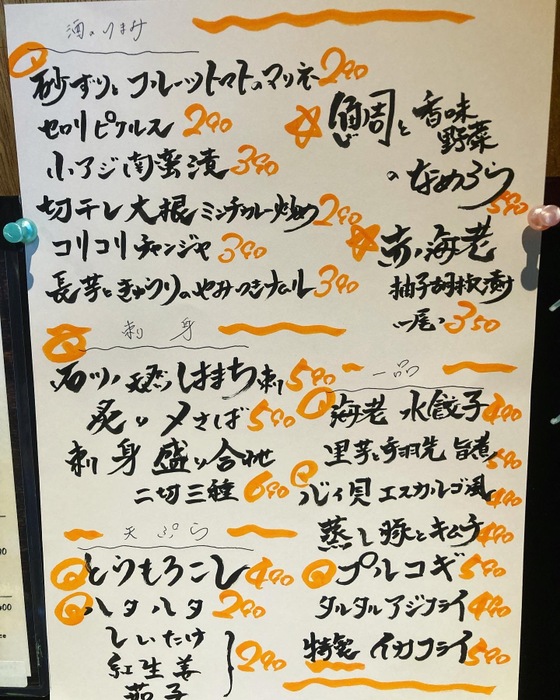 酒のつまみ
砂ずりとフルーツトマトのマリネ 290
セロリピクルス 290
小アジ南蛮漬 390
切干し大根ミンチカレー炒め 290
コリコリチャンジャ 390
長芋ときゅうりのやみつきナムル 390
鯛と香味
野菜
のなめろう
590
赤海老
柚子胡椒漬け
一尾 350
刺身
しまあじ刺 590
炙り〆さば 590
刺身盛り合わせ
二切三種 690
一品
海老水餃子 490
里芋と手羽先旨煮 590
バイ貝エスカルゴ風 490
蒸し豚とキムチ 490
プルコギ 590
タルタルアジフライ 490
特製イカフライ 590
天ぷら
とうもろこし 490
ハタハタ 290
しいたけ
紅生姜
茄子
290